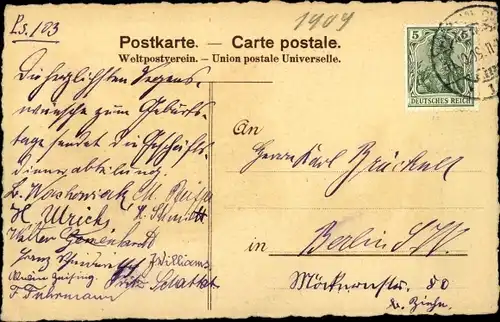 Ps. 123
1909
Postkarte. — Carte postale.
Weltpostverein. – Union postale Universelle.
5
DEUTSCHES REICH
Die herzlichsten Segens-
wünsche zum Geburts-
tage sendet die Geschäfts-
dienerabteilung.
H. Ulrichs K. Schmidt
Walter
Franz Williams
F. Fuhrmann
An
Herrn Karl Brückner
in Berlin S.W.
Möckernstr. 80
b. Ziehe